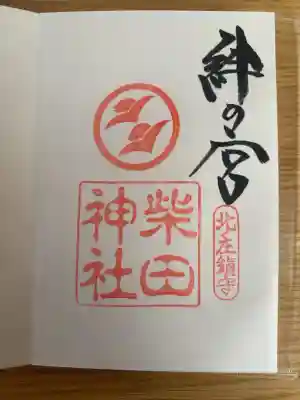 絆の宮
北庄鎮守
柴田
神社